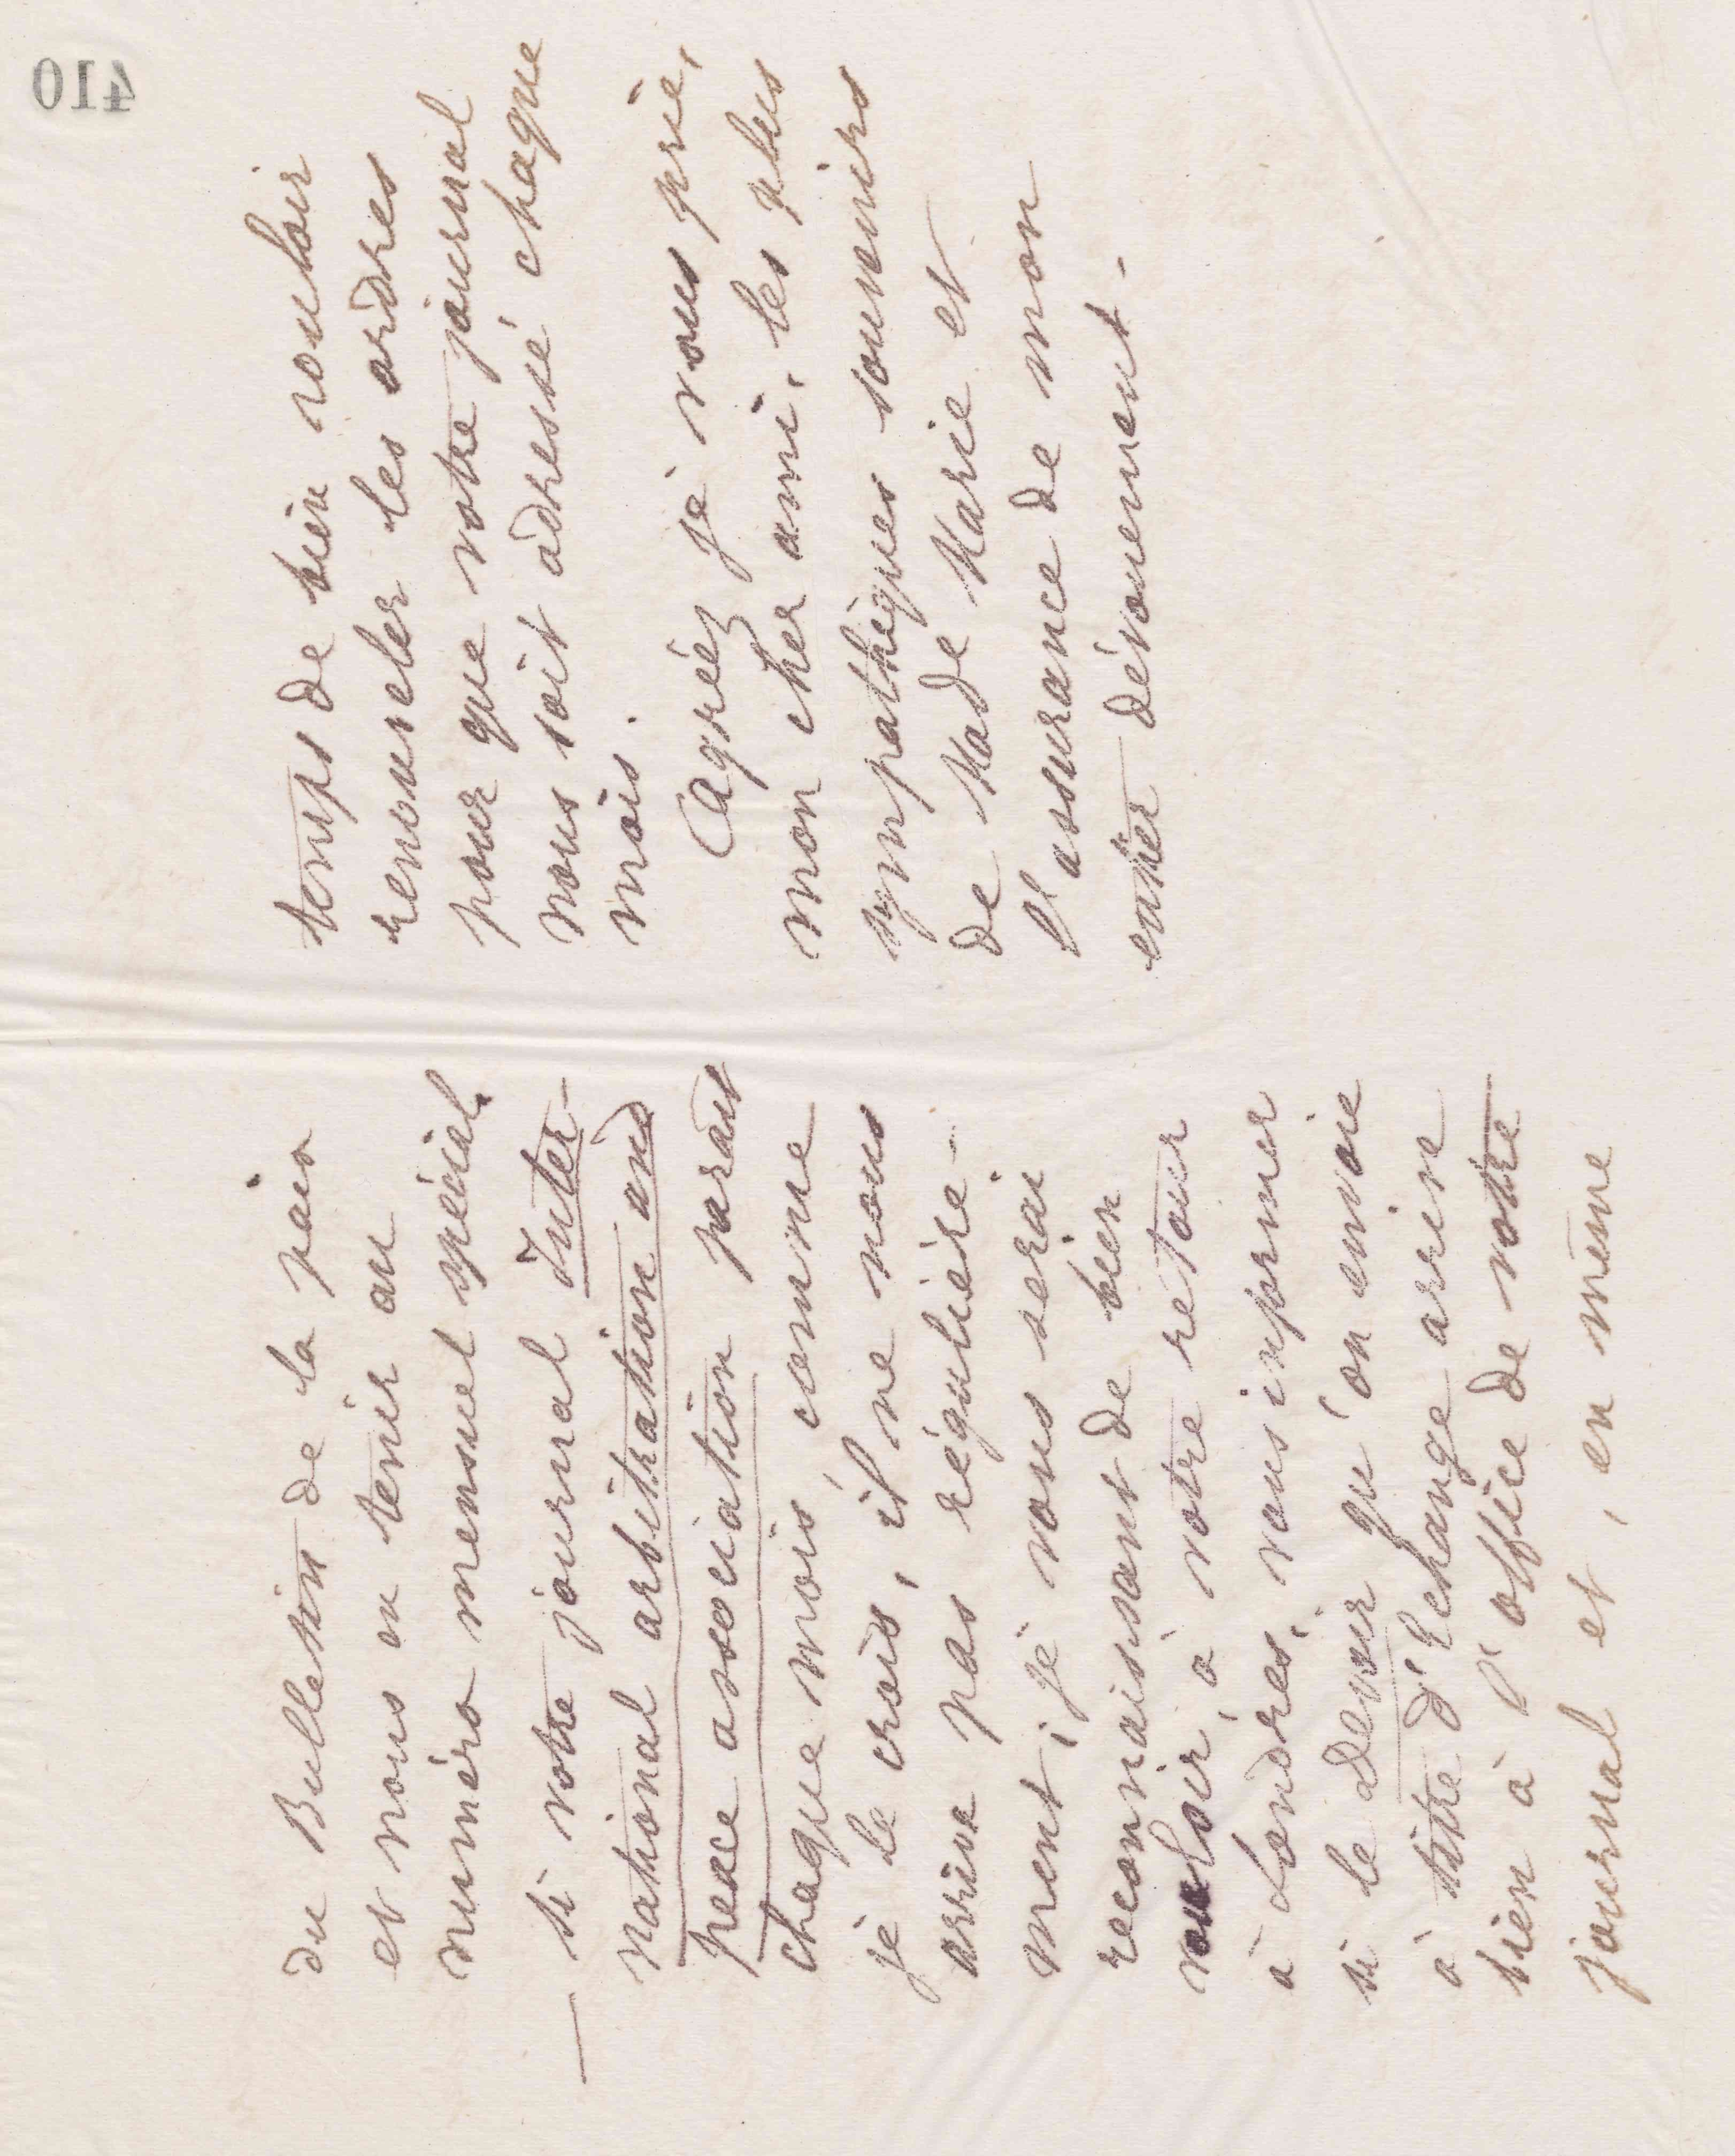 410
du Bulletin de la paix
et nous en tenir au
numéro mensuel spécial.
— Si votre journal Inter-
national arbitration and
peace association parait
chaque mois, comme
je le crois, il ne nous
arrive pas régulière-
ment; je vous serai
reconnaissant de bien
vouloir, à votre retour
à Londres, vous informer
si le Devoir qu'on envoie
à titre d'Echange arrive
bien à l'office de votre
journal et, en même
temps de bien vouloir
renouveler les ordres
pour que votre journal
nous soit adressé chaque
mois.
Agréez je vous prie,
mon cher ami, les plus
sympathiques souvenirs
de Made Marie et
l'assurance de mon
entier dévouement.